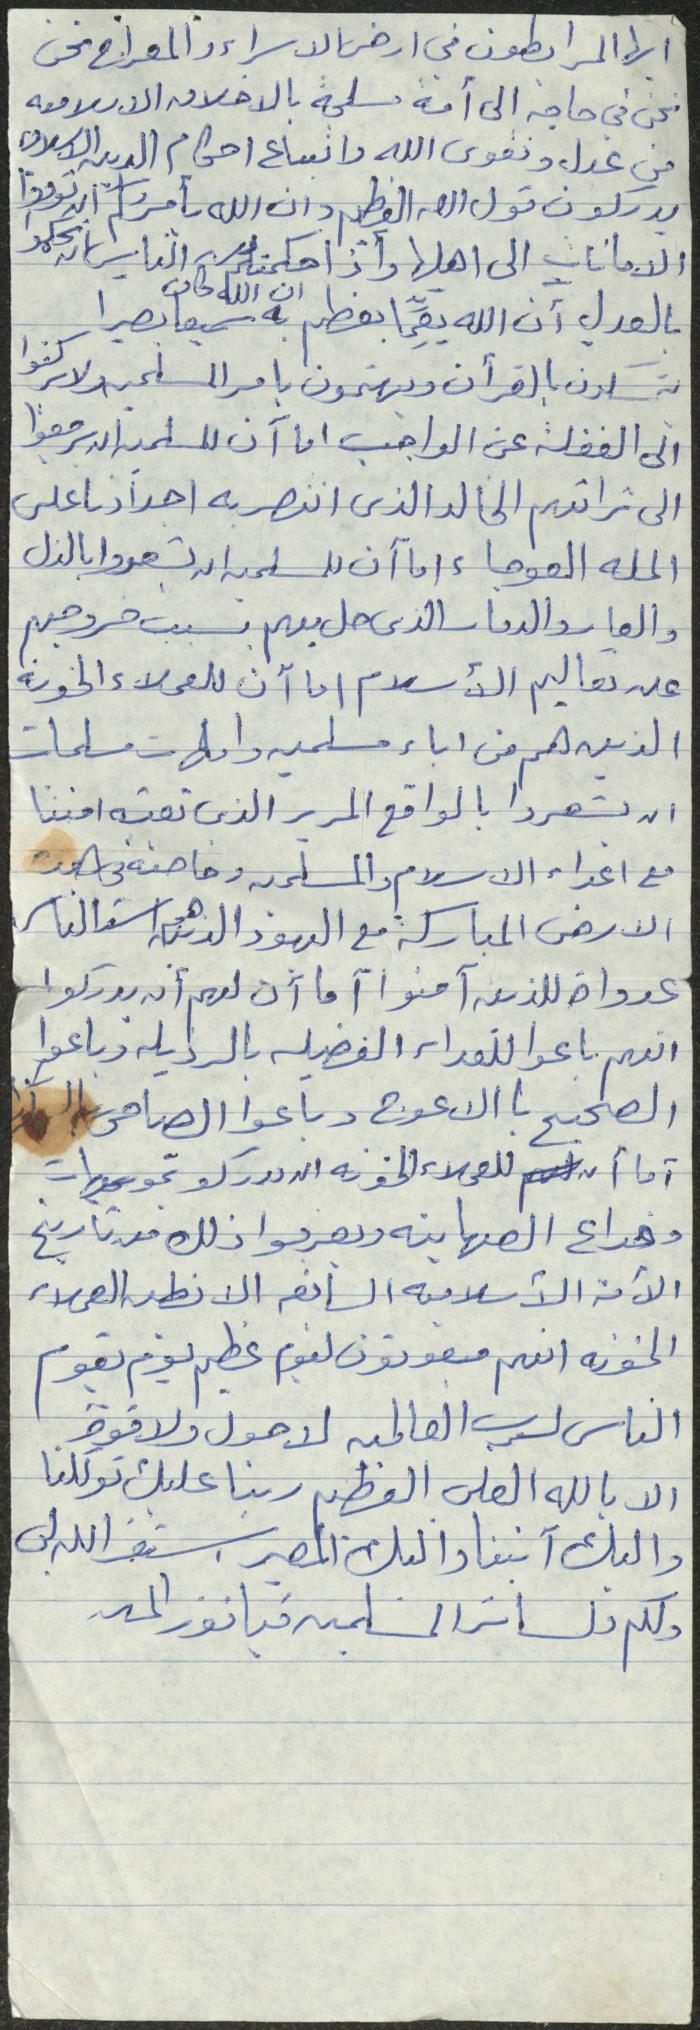 ايها المرابطون في ارض الاسراء والمعراج نحن
نحن في حاجه الى أمة مسلمة بالاخلاق الاسلاميه
من عدل وتقوى الله واتباع احكام الدين الاسلامي
يدركون قول الله العظيم وان الله يأمركم ان تؤدوا
الامانات الى اهلها وأذا حكمتم بين الناس ان تحكموا
بالعدل أن الله نعِمَّا يعظكم به ان الله كان سميعا بصيرا
يتمسكون بالقرأن ويهتمون بامر المسلمين ولا يركنوا
الى الغفلة عن الواجب اما آن للمسلمين ان يرجعوا
الى تراثهم الخالد الذى انتصر به اجدادنا على
المله العوجاء اما آن للمسلمين ان يشعروا بالذل
والعار والدمار الذى حل بهم بسبب خروجهم
عن تعاليم الأسلام اما آن للعملاء الخونه
الذين هم من اباء مسلمين وامهات مسلمات
ان يشعروا بالواقع المرير الذى تعيشه امتنا
مع اعداء الاسلام والمسلمين وخاصة في هذه
الارض المباركة مع اليهود الذين هم اشد الناس
عدواة للذين آمنوا آما آن لهم أن يدركوا
انهم باعوا للاعداء الفضيله بالرذيله وباعوا
الصحيح باالاعوج وباعوا الصاحى
آما أن للعملاء الخونه ان يدركو تمويهات
وخداع الصهاينه ويعرفوا ذلك من تاريخ
الأمة الأسلاميه السابقه الا نظن العملاء
الخونه انهم مبعوثون ليوم عظيم يوم يقوم
الناس لرب العالمين لاحول ولا قوة
الا بالله العلى العظيم ربنا عليك توكلنا
واليك آنبنا واليك المصير استغفر الله لى
ولكم ولسائر المسلمين